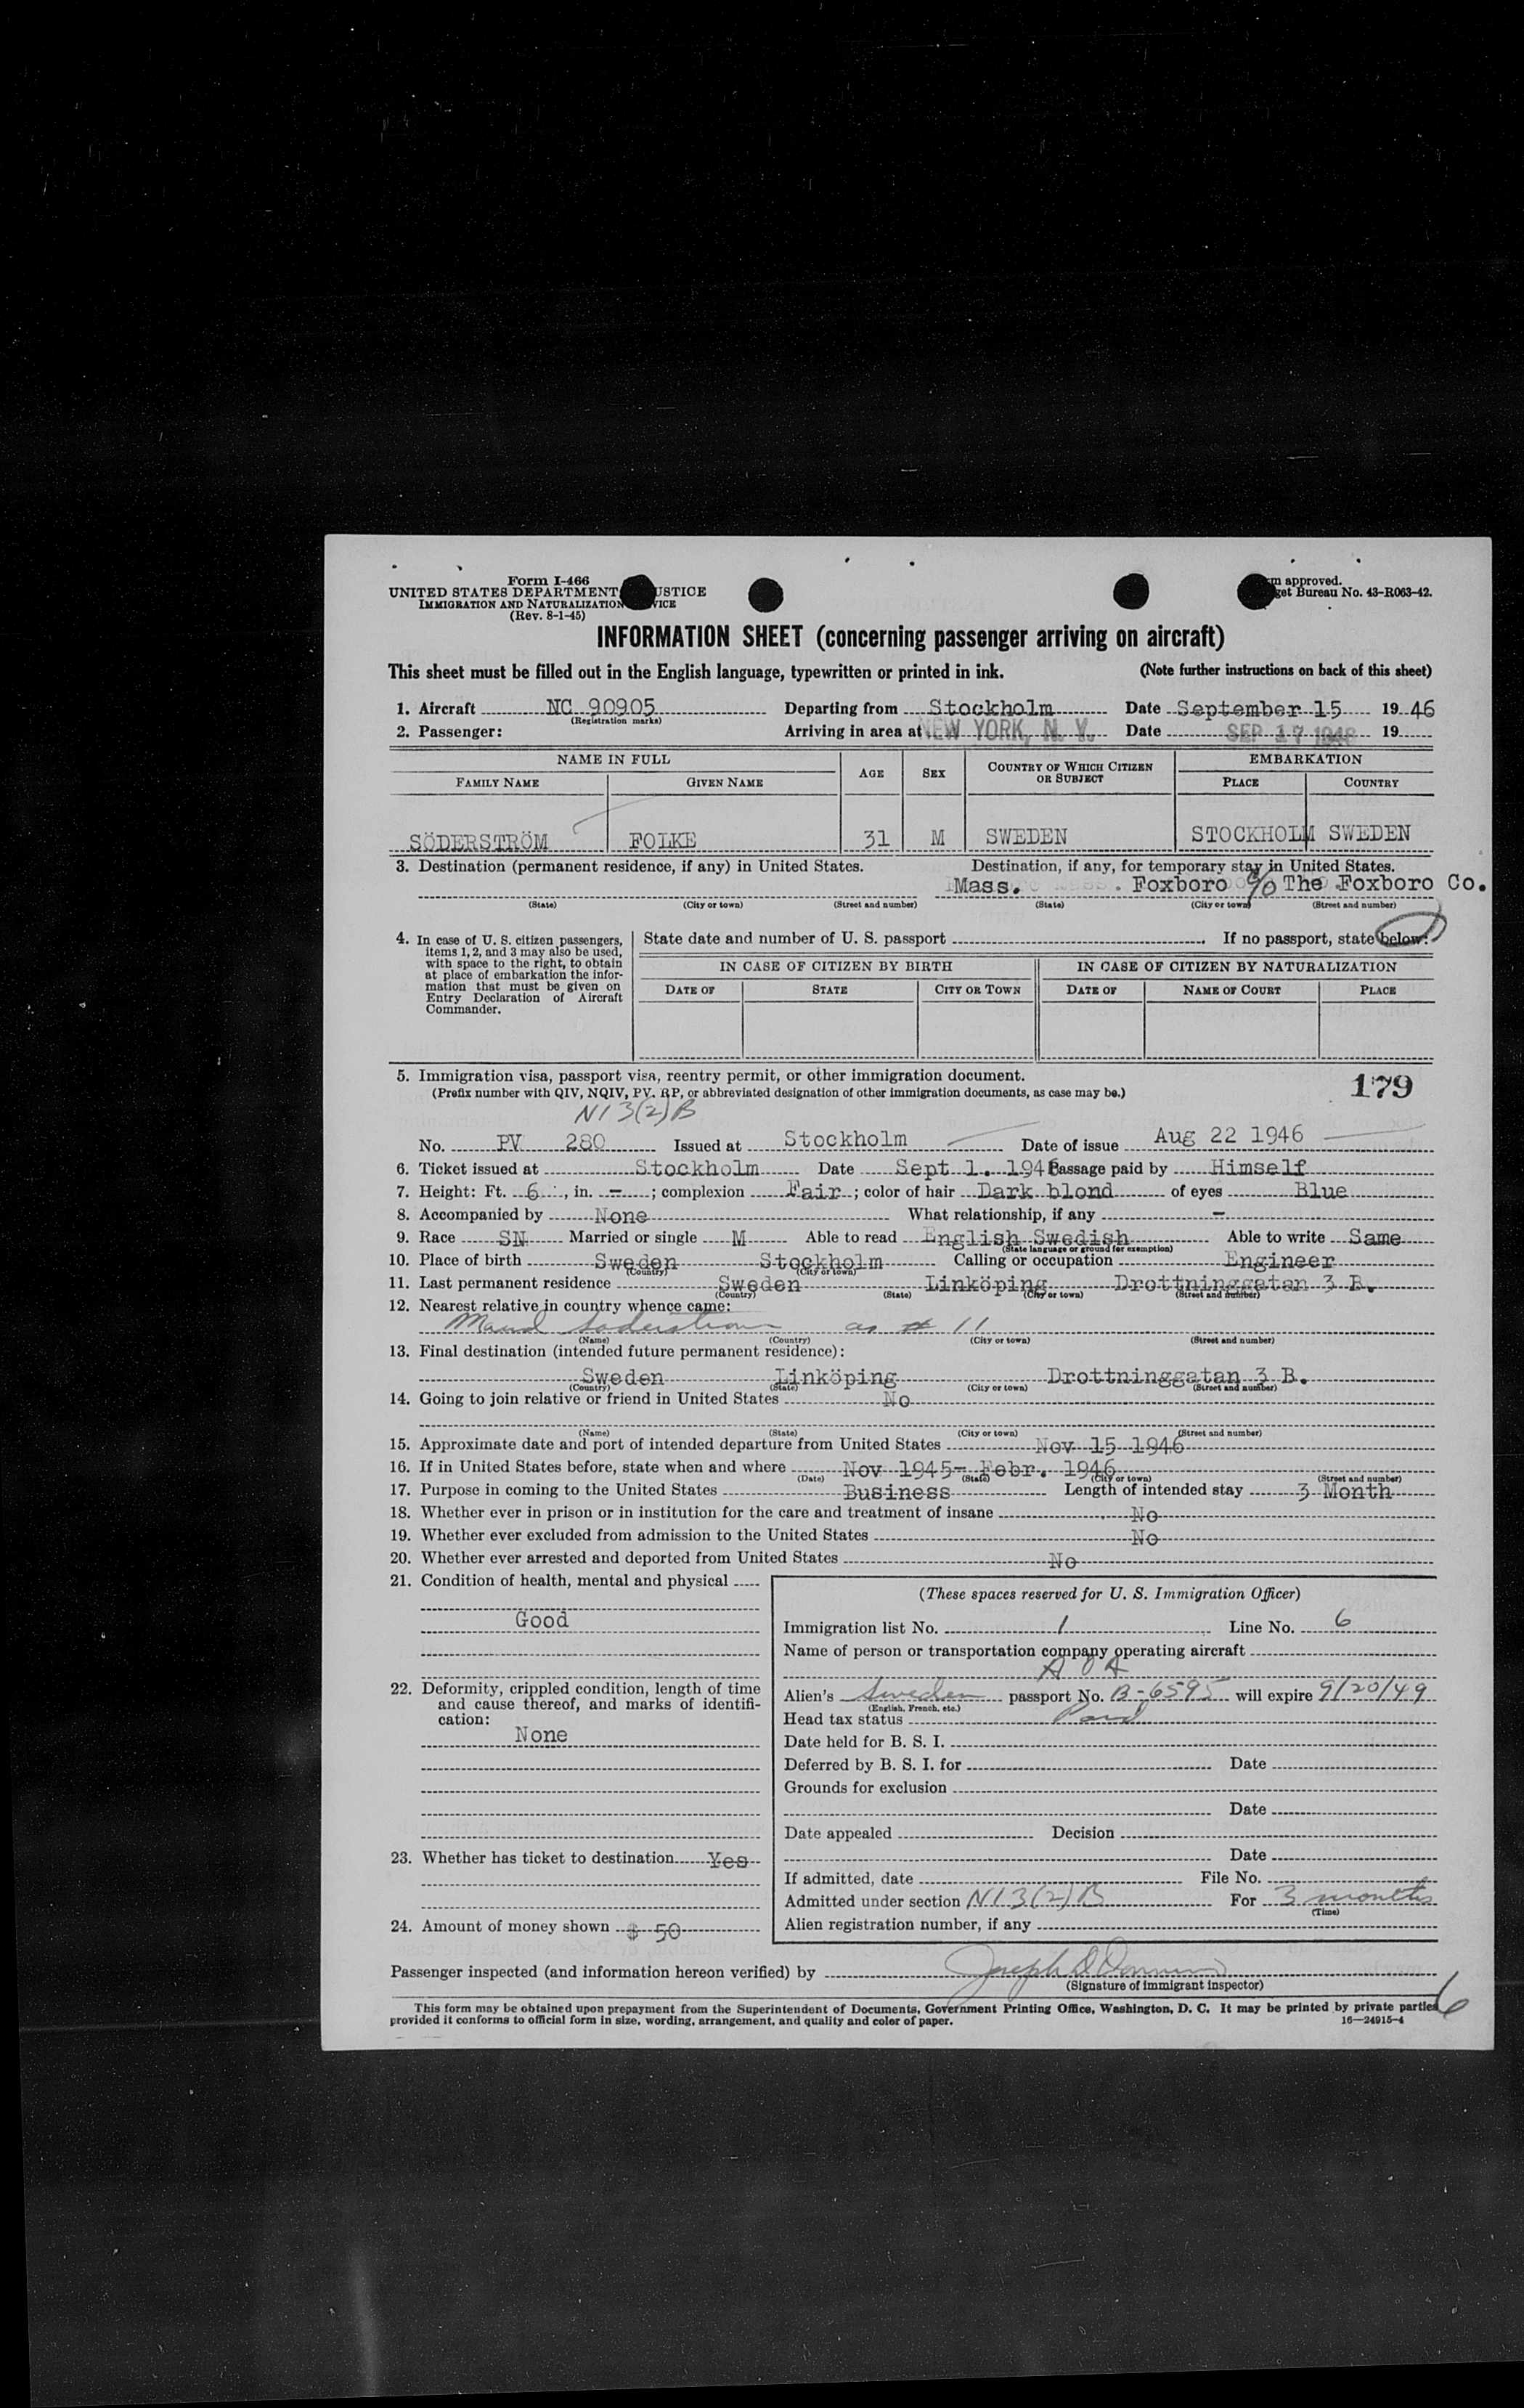 Form I-466
UNITED STATES DEPARTMENT USTICE
IMMIGRATION AND NATURALIZATION VICE
(Rev. 8-1-45)
m approved.
get Bureau No. 43-R063-42.
INFORMATION SHEET (concerning passenger arriving on aircraft)
This sheet must be filled out in the English language, typewritten or printed in ink. (Note further instructions on back of this sheet)
1. Aircraft NC 90905 Departing from Stockholm Date September 15 19 46
(Registration marks)
2. Passenger: Arriving in area at NEW YORK, N. Y. Date SEP 17 19
NAME IN FULL AGE SEX COUNTRY OF WHICH CITIZEN OR SUBJECT EMBARKATION
FAMILY NAME GIVEN NAME PLACE COUNTRY
SÖDERSTRÖM FOLKE 31 M SWEDEN STOCKHOLM SWEDEN
3. Destination (permanent residence, if any) in United States. Destination, if any, for temporary stay in United States.
Mass. Foxboro c/o The Foxboro Co.
(State) (City or town) (Street and number) (State) (City or town) (Street and number)
4. In case of U. S. citizen passengers, items 1, 2, and 3 may also be used, with space to the right, to obtain at place of embarkation the information that must be given on Entry Declaration of Aircraft Commander.
State date and number of U. S. passport If no passport, state below:
IN CASE OF CITIZEN BY BIRTH IN CASE OF CITIZEN BY NATURALIZATION
DATE OF STATE CITY OR TOWN DATE OF NAME OF COURT PLACE
5. Immigration visa, passport visa, reentry permit, or other immigration document. 179
(Prefix number with QIV, NQIV, PV, RP, or abbreviated designation of other immigration documents, as case may be.)
NI 3(2)B
No. PV 280 Issued at Stockholm Date of issue Aug 22 1946
6. Ticket issued at Stockholm Date Sept 1. 1946 Passage paid by Himself
7. Height: Ft. 6 , in. - ; complexion Fair ; color of hair Dark blond of eyes Blue
8. Accompanied by None What relationship, if any -
9. Race SN Married or single M Able to read English Swedish Able to write Same
(State language or ground for exemption)
10. Place of birth Sweden Stockholm Calling or occupation Engineer
(Country) (City or town)
11. Last permanent residence Sweden Linköping Drottninggatan 3 B.
(Country) (State) (City or town) (Street and number)
12. Nearest relative in country whence came:
Maud Soderstrom as # 11
(Name) (Country) (City or town) (Street and number)
13. Final destination (intended future permanent residence):
Sweden Linköping Drottninggatan 3 B.
(Country) (State) (City or town) (Street and number)
14. Going to join relative or friend in United States No
(Name) (State) (City or town) (Street and number)
15. Approximate date and port of intended departure from United States Nov 15 1946
16. If in United States before, state when and where Nov 1945- Febr. 1946
(Date) (State) (City or town) (Street and number)
17. Purpose in coming to the United States Business Length of intended stay 3 Month
18. Whether ever in prison or in institution for the care and treatment of insane No
19. Whether ever excluded from admission to the United States No
20. Whether ever arrested and deported from United States No
21. Condition of health, mental and physical
Good
22. Deformity, crippled condition, length of time and cause thereof, and marks of identification:
None
23. Whether has ticket to destination Yes
24. Amount of money shown $ 50
(These spaces reserved for U. S. Immigration Officer)
Immigration list No. 1 Line No. 6
Name of person or transportation company operating aircraft
A O A
Alien's Sweden passport No. B-6595 will expire 9/20/49
(English, French, etc.)
Head tax status Paid
Date held for B. S. I.
Deferred by B. S. I. for Date
Grounds for exclusion
Date
Date appealed Decision
Date
If admitted, date File No.
Admitted under section NI 3(2)B For 3 months
(Time)
Alien registration number, if any
Passenger inspected (and information hereon verified) by Joseph D
(Signature of immigrant inspector)
This form may be obtained upon prepayment from the Superintendent of Documents, Government Printing Office, Washington, D. C. It may be printed by private parties
provided it conforms to official form in size, wording, arrangement, and quality and color of paper. 16—24915-4
6